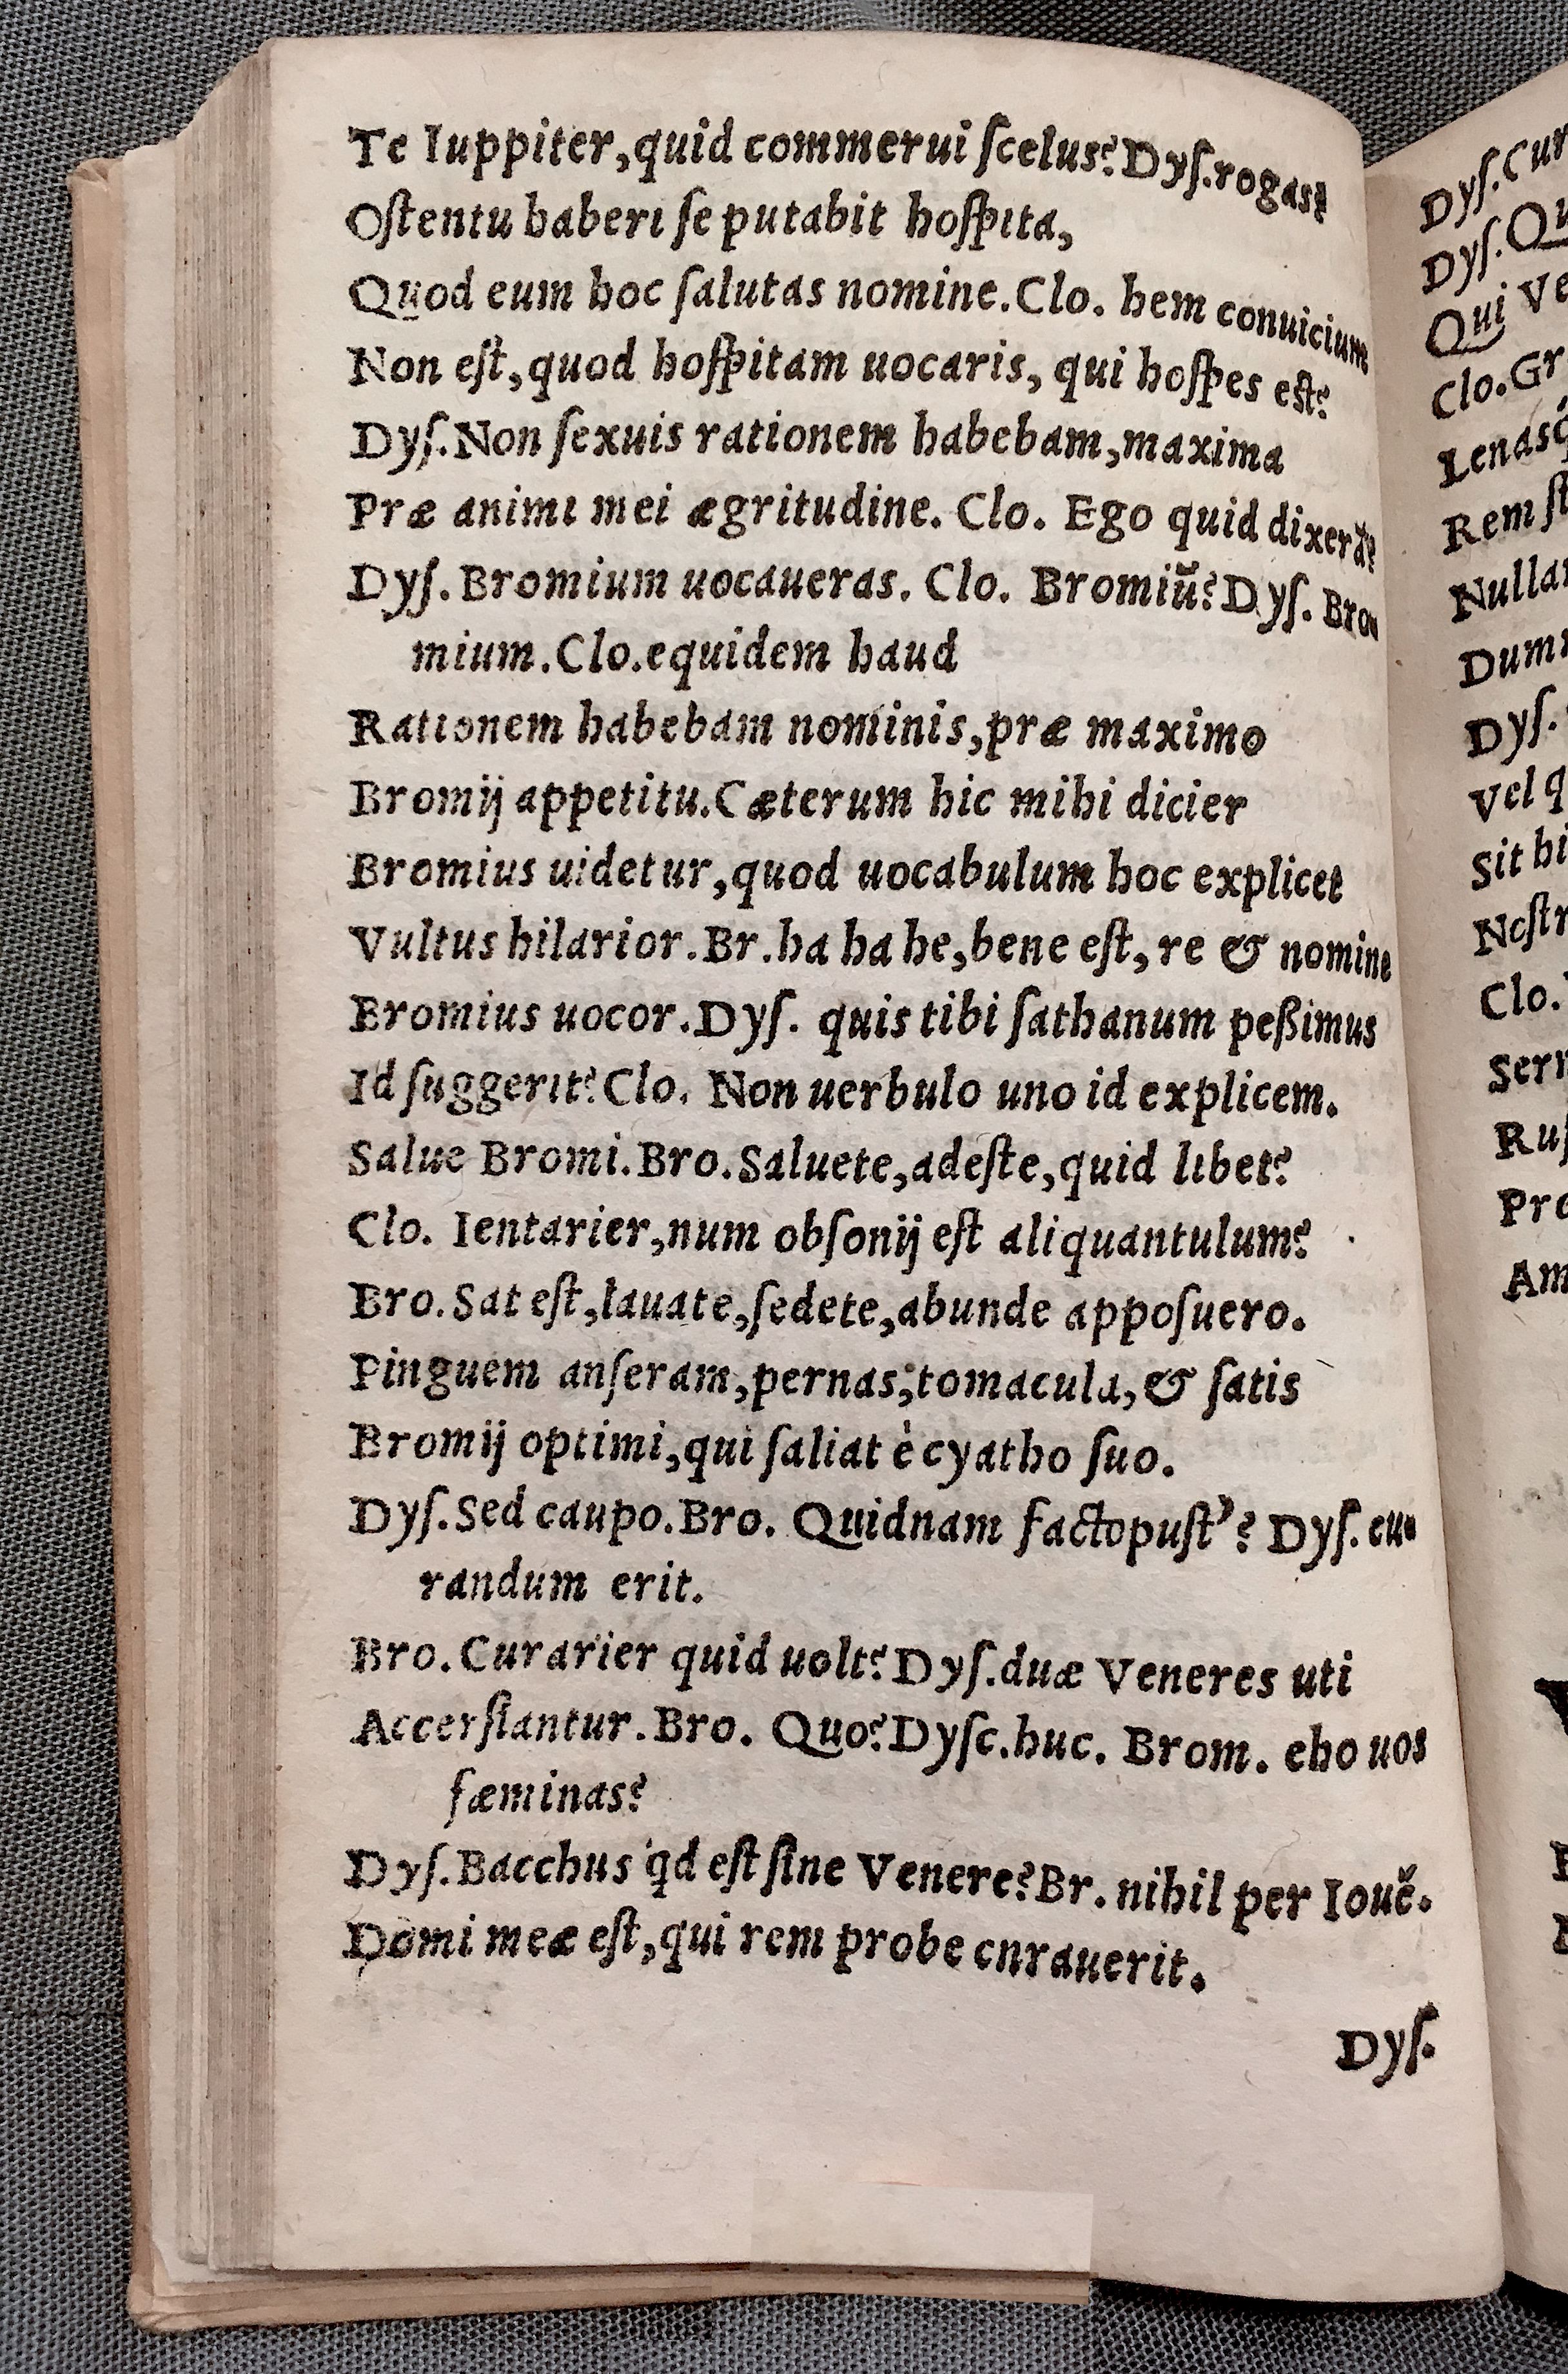 Te Iuppiter, quid commerui ſcelus? Dyſ. rogas?
Oſtentu haberi ſe putabit hoſpita,
Quod eum hoc ſalutas nomine. Clo. hem conuicium
Non eſt, quod hoſpitam uocaris, qui hoſpes eſt?
Dyſ. Non ſexuis rationem habebam, maxima
Præ animi mei ægritudine. Clo. Ego quid dixerā?
Dyſ. Bromium uocaueras. Clo. Bromiū? Dyſ. Bro-
mium. Clo. equidem haud
Rationem habebam nominis, præ maximo
Bromij appetitu. Cæterum hic mihi dicier
Bromius uidetur, quod uocabulum hoc explicet
Vultus hilarior. Br. ha ha he, bene eſt, re & nomine
Bromius uocor. Dyſ. quis tibi ſathanum peßimus
Id ſuggerit? Clo. Non uerbulo uno id explicem.
Salue Bromi. Bro. Saluete, adeſte, quid libet?
Clo. Ientarier, num obſonij eſt aliquantulum?
Bro. Sat eſt, lauate, ſedete, abunde appoſuero.
Pinguem anſeram, pernas, tomacula, & ſatis
Bromij optimi, qui ſaliat è cyatho ſuo.
Dyſ. Sed caupo. Bro. Quidnam factopuſt’? Dyſ. cu-
randum erit.
Bro. Curarier quid uolt? Dyſ. duæ Veneres uti
Accerſiantur. Bro. Quo? Dyſc. huc. Brom. eho uos
fæminas?
Dyſ. Bacchus qd eſt ſine Venere? Br. nihil per Iouē.
Domi meæ eſt, qui rem probe cnrauerit.
Dyſ.
Dyſ. Cur
Dyſ. Qu
Qui Ve
Clo. Gr
Rem ſt
Nullam
Dyſ.
Vel q
Sit hi
Noſtr
Clo.
Ruſ
Pro
Am